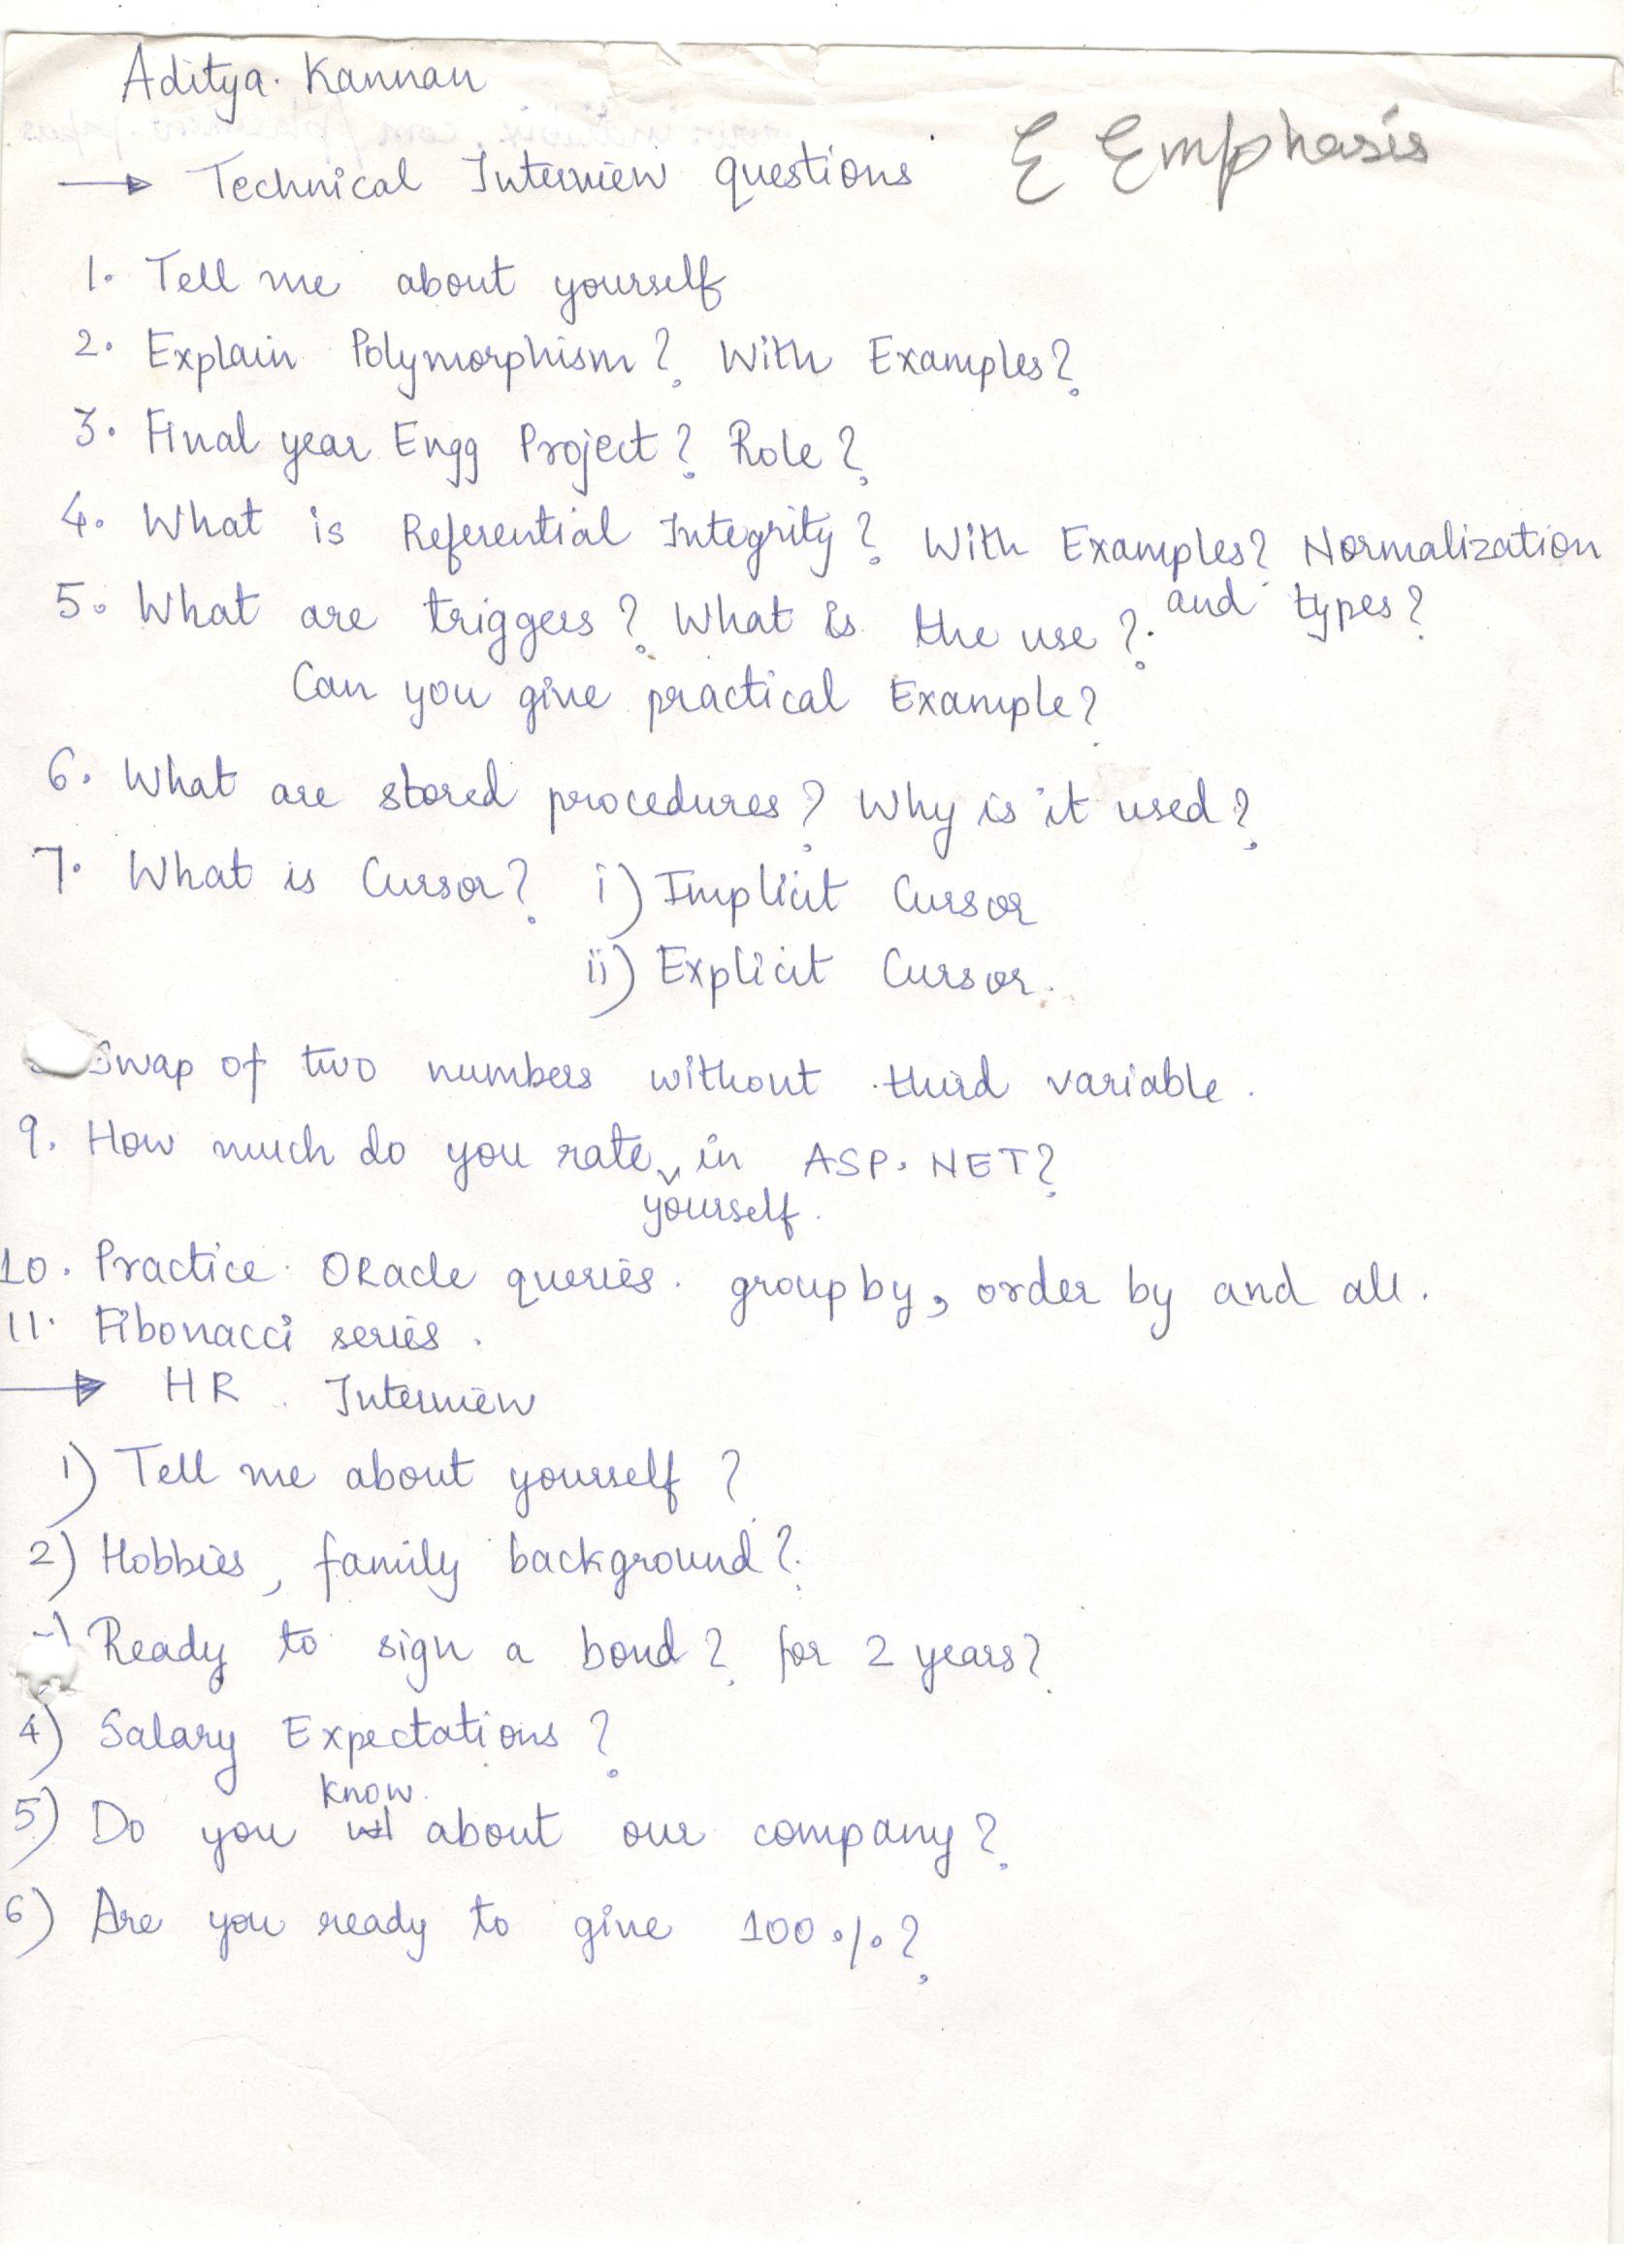 Aditya. Kannan
→ Technical Interview questions E Emphasis
1. Tell me about yourself
2. Explain Polymorphism? With Examples?
3. Final year Engg Project? Role?
4. What is Referential Integrity? With Examples? Normalization
and types?
5. What are triggers? What is the use?
Can you give practical Example?
6. What are stored procedures? Why is it used?
7. What is Cursor? i) Implicit Cursor
ii) Explicit Cursor.
Swap of two numbers without third variable.
9. How much do you rate yourself in ASP.NET?
10. Practice Oracle queries. group by, order by and all.
11. Fibonacci series.
→ HR Interview
1) Tell me about yourself?
2) Hobbies, family background?
Ready to sign a bond? for 2 years?
4) Salary Expectations?
5) Do you know about our company?
6) Are you ready to give 100%?